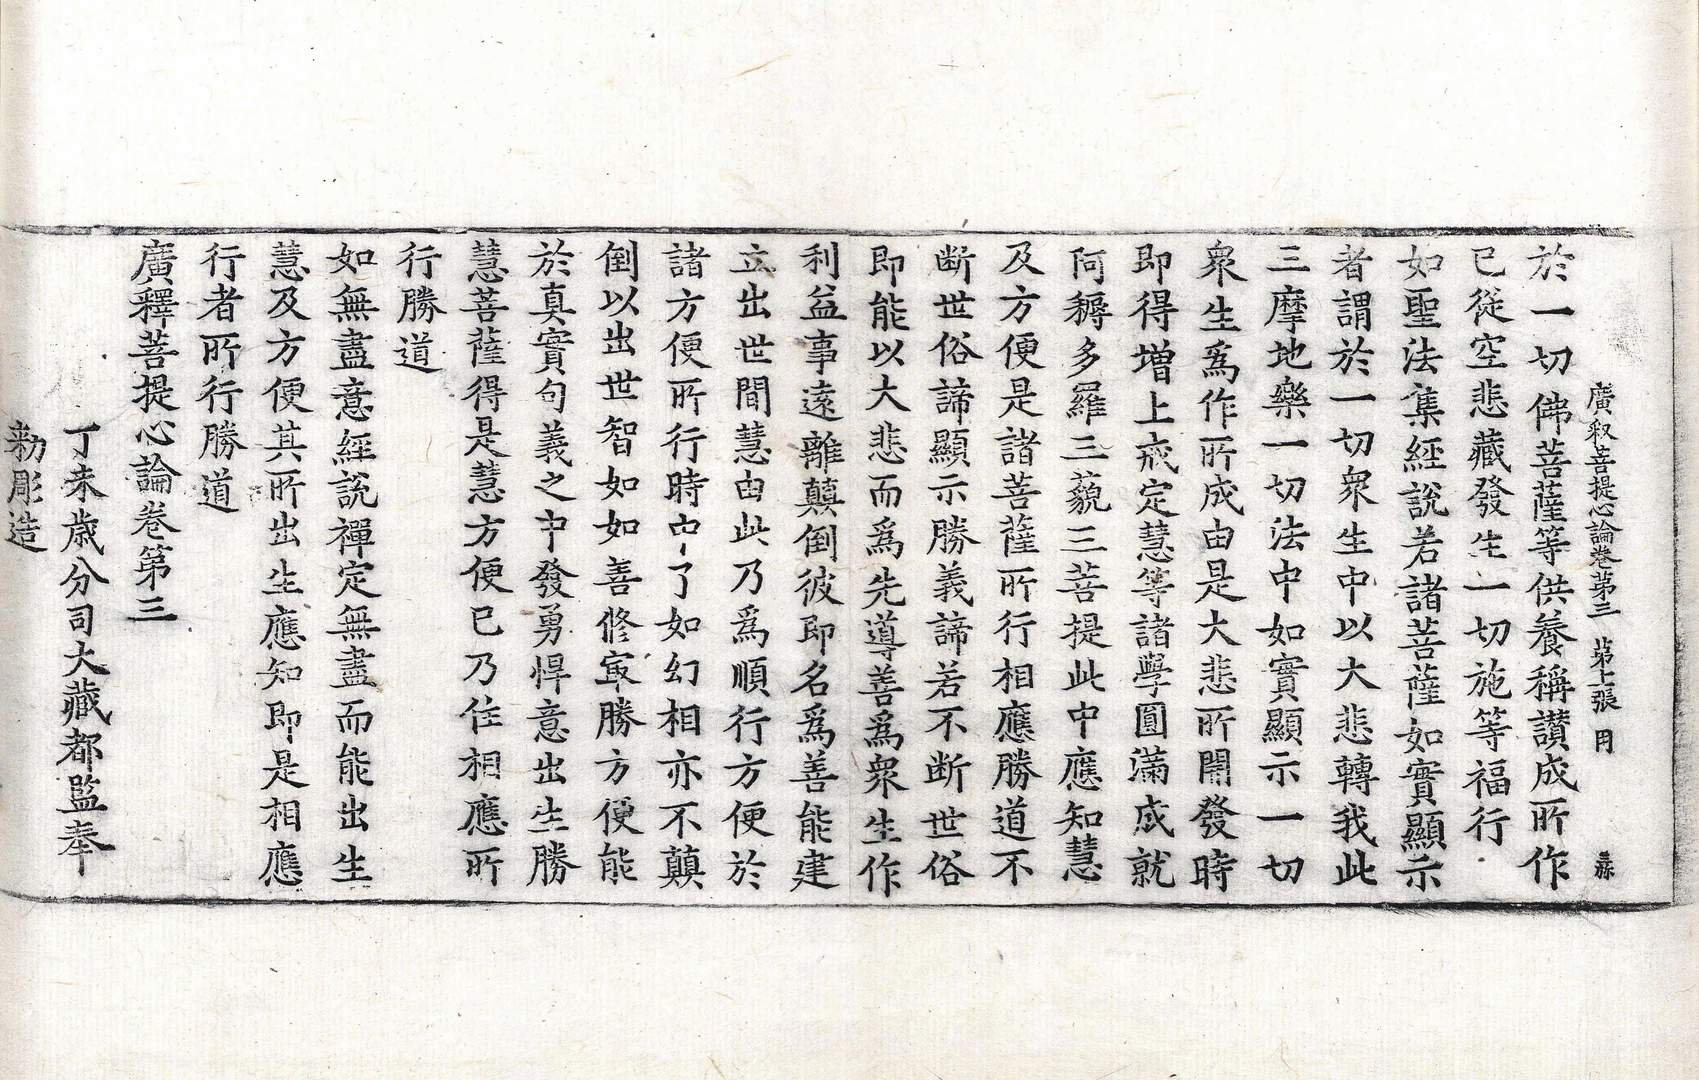 廣釈菩提心論卷第三　第七張　用
於一切佛菩薩等供養稱讃成所作
已從空悲藏發生一切施等福行
如聖法集經說若諸菩薩如實顯示
者謂於一切衆生中以大悲轉我此
三摩地樂一切法中如實顯示一切
衆生爲作所成由是大悲所開發時
即得增上戒定慧等諸學圓滿成就
阿耨多羅三藐三菩提此中應知慧
及方便是諸菩薩所行相應勝道不
断世俗諦顯示勝義諦若不断世俗
即能以大悲而爲先導善爲衆生作
利益事遠離顛倒彼即名爲善能建
立出世間慧由此乃爲順行方便於
諸方便所行時中了如幻相亦不顛
倒以出世智如如善修㝡勝方便能
於真實句義之中發勇悍意出生勝
慧菩薩得是慧方便已乃住相應所
行勝道
如無盡意經說禪定無盡而能出生
慧及方便其所出生應知即是相應
行者所行勝道
廣釋菩提心論卷第三
丁未歲分司大藏都監奉
勑彫造